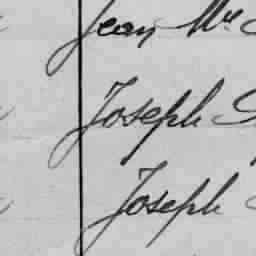 Jean Mc
Joseph
Joseph